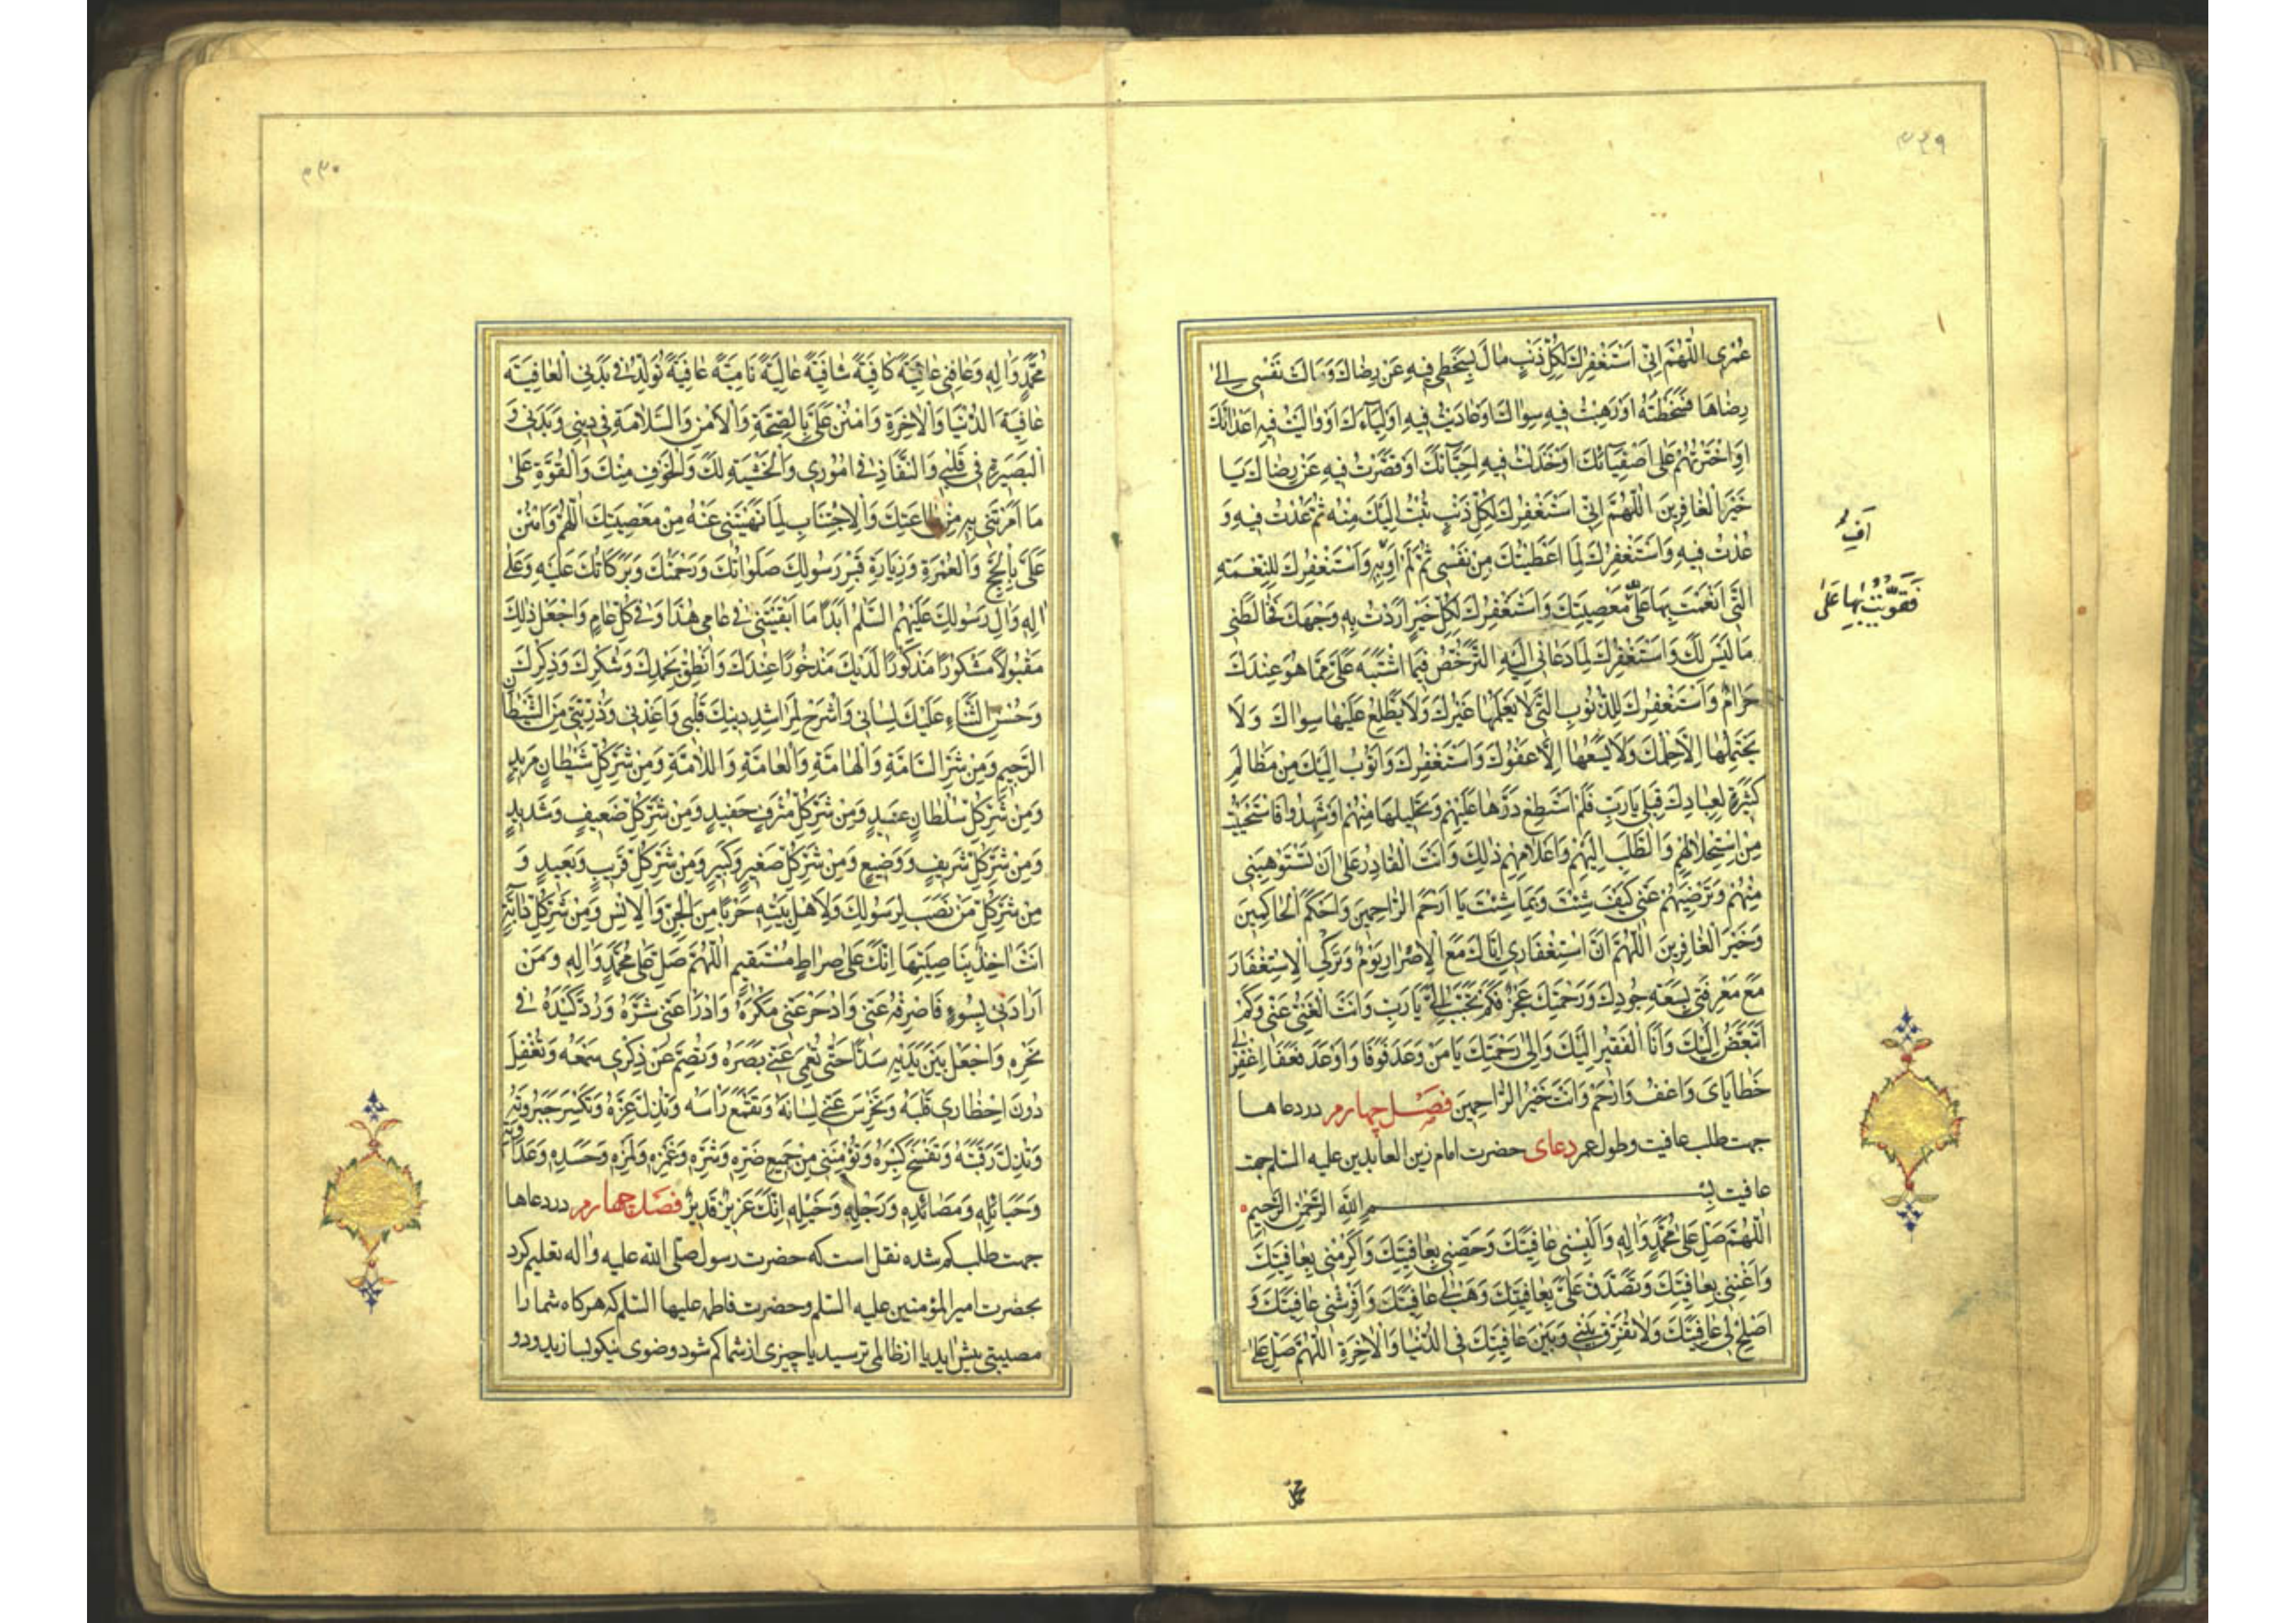 ۳۲۹
عُمْرِی اَللّٰهُمَّ اِنّی اَسْتَغْفِرُكَ لِكُلِّ ذَنْبٍ مالَ بِسَخَطی فیهِ عَنْ رِضاكَ وَمَالَتْ نَفْسی اِلیٰ
رِضاهَا فَسَخِطْتَهُ اَوْ رَهِبْتُ فیهِ سِواكَ اَوْ عَادَیْتُ فیهِ اَوْلِیٰآءَكَ اَوْ والَیْتُ فیهِ اَعْدٰائَكَ
اَوِ اخْتَرْتُهُمْ عَلیٰ اَصْفِیٰآئِكَ اَوْ خَذَلْتُ فیهِ اَحِبّٰآئَكَ اَوْ قَصَّرْتُ فیهِ عَنْ رِضاكَ یَا
خَیْرَ الْغٰافِرینَ اَللّٰهُمَّ اِنّی اَسْتَغْفِرُكَ لِكُلِّ ذَنْبٍ تُبْتُ اِلَیْكَ مِنْهُ ثُمَّ عُدْتُ فیهِ وَ
عُدْتُ فیهِ وَاَسْتَغْفِرُكَ لِمَا اَعْطَیْتُكَ مِنْ نَفْسی ثُمَّ لَمْ اَفِ بِهِ وَاَسْتَغْفِرُكَ لِلنِّعْمَةِ
اَفِ
الَّتی اَنْعَمْتَ بِهَا عَلَیَّ مَعْصِیَتِكَ وَاَسْتَغْفِرُكَ لِكُلِّ خَیْرٍ اَرَدْتُ بِهِ وَجْهَكَ فَخٰالَطَنی
فَتَقَوَّیْتُ بِهٰا عَلیٰ
مَا لَیْسَ لَكَ وَاَسْتَغْفِرُكَ لِمَا دَعٰانی اِلَیْهِ التَّرَخُّصُ فیمَا اشْتَبَهَ عَلَیَّ مِمّٰا هُوَ عِنْدَكَ
حَرٰامٌ وَاَسْتَغْفِرُكَ لِلذُّنُوبِ الَّتی لاٰ یَعْلَمُهٰا غَیْرُكَ وَلاٰ یَطَّلِعُ عَلَیْهٰا سِوٰاكَ وَلاٰ
یَحْتَمِلُهٰا اِلاّٰ حِلْمُكَ وَلاٰ یَسَعُهٰا اِلاّٰ عَفْوُكَ وَاَسْتَغْفِرُكَ وَاَتُوبُ اِلَیْكَ مِنْ مَظٰالِمَ
كَثیرَةٍ لِعِبٰادِكَ قِبَلی یٰا رَبِّ فَلَمْ اَسْتَطِعْ رَدَّهٰا عَلَیْهِمْ وَتَحْلیلَهٰا مِنْهُمْ اَوْ شَهِدُوا فَاسْتَحْیَیْتُ
مِنِ اسْتِحْلاٰلِهِمْ وَالطَّلَبِ اِلَیْهِمْ وَاِعْلاٰمِهِمْ ذٰلِكَ وَاَنْتَ الْقٰادِرُ عَلیٰ اَنْ تَسْتَوْهِبَنی
مِنْهُمْ وَتُرْضِیَهُمْ عَنّی كَیْفَ شِئْتَ وَبِمٰا شِئْتَ یٰا اَرْحَمَ الرّٰاحِمینَ وَاَحْكَمَ الْحٰاكِمینَ
وَخَیْرَ الْغٰافِرینَ اَللّٰهُمَّ اِنَّ اسْتِغْفٰاری اِیّٰاكَ مَعَ الْاِصْرٰارِ لُؤْمٌ وَتَرْكِی الْاِسْتِغْفٰارَ
مَعَ مَعْرِفَتی بِسَعَةِ جُودِكَ وَرَحْمَتِكَ عَجْزٌ فَكَمْ تَتَحَبَّبُ اِلَیَّ یٰا رَبِّ وَاَنْتَ الْغَنِیُّ عَنّی وَكَمْ
اَتَبَغَّضُ اِلَیْكَ وَاَنَا الْفَقیرُ اِلَیْكَ وَاِلیٰ رَحْمَتِكَ یٰا مَنْ وَعَدَ فَوَفٰا وَاَوْعَدَ فَعَفٰا اِغْفِرْ لی
خَطٰایٰایَ وَاعْفُ وَارْحَمْ وَاَنْتَ خَیْرُ الرّٰاحِمینَ فصل چهارم در دعاها
جهت طلب عافیت وطول عمر دعای حضرت امام زین العابدین علیه السلم جهت
عافیت بِسْمِ اللّٰهِ الرَّحْمٰنِ الرَّحیمِ
اَللّٰهُمَّ صَلِّ عَلیٰ مُحَمَّدٍ وَاٰلِهِ وَاَلْبِسْنی عٰافِیَتَكَ وَحَصِّنّی بِعٰافِیَتِكَ وَاَكْرِمْنی بِعٰافِیَتِكَ
وَاَغْنِنی بِعٰافِیَتِكَ وَتَصَدَّقْ عَلَیَّ بِعٰافِیَتِكَ وَهَبْ لی عٰافِیَتَكَ وَاَفْرِشْنی عٰافِیَتَكَ وَ
اَصْلِحْ لی عٰافِیَتَكَ وَلاٰ تُفَرِّقْ بَیْنی وَبَیْنَ عٰافِیَتِكَ فِی الدُّنْیٰا وَالْاٰخِرَةِ اَللّٰهُمَّ صَلِّ عَلیٰ
محمد
۳۳۰
مُحَمَّدٍ وَاٰلِهِ وَعٰافِنی عٰافِیَةً كٰافِیَةً شٰافِیَةً عٰالِیَةً نٰامِیَةً عٰافِیَةً تُوَلِّدُ فی بَدَنِی الْعٰافِیَةَ
عٰافِیَةَ الدُّنْیٰا وَالْاٰخِرَةِ وَامْنُنْ عَلَیَّ بِالصِّحَّةِ وَالْاَمْنِ وَالسَّلاٰمَةِ فی دینی وَبَدَنی وَ
الْبَصیرَةِ فی قَلْبی وَالنَّفٰاذِ فی اُمُوری وَالْخَشْیَةِ لَكَ وَالْخَوْفِ مِنْكَ وَالْقُوَّةِ عَلیٰ
مٰا اَمَرْتَنی بِهِ مِنْ طٰاعَتِكَ وَالْاِجْتِنٰابِ لِمٰا نَهَیْتَنی عَنْهُ مِنْ مَعْصِیَتِكَ اَللّٰهُمَّ وَامْنُنْ
عَلَیَّ بِالْحَجِّ وَالْعُمْرَةِ وَزِیٰارَةِ قَبْرِ رَسُولِكَ صَلَوٰاتُكَ وَرَحْمَتُكَ وَبَرَكٰاتُكَ عَلَیْهِ وَعَلیٰ
اٰلِهِ وَاٰلِ رَسُولِكَ عَلَیْهِمُ السَّلٰمُ اَبَدًا مٰا اَبْقَیْتَنی فی عٰامی هٰذٰا وَفی كُلِّ عٰامٍ وَاجْعَلْ ذٰلِكَ
مَقْبُولاً مَشْكُورًا مَذْكُورًا لَدَیْكَ مَذْخُورًا عِنْدَكَ وَاَنْطِقْ بِحَمْدِكَ وَشُكْرِكَ وَذِكْرِكَ
وَحُسْنِ الثَّنٰاءِ عَلَیْكَ لِسٰانی وَاشْرَحْ لِمَرٰاشِدِ دینِكَ قَلْبی وَاَعِذْنی وَذُرِّیَّتی مِنَ الشَّیْطٰانِ
الرَّجیمِ وَمِنْ شَرِّ السّٰامَّةِ وَالْهٰامَّةِ وَالْعٰامَّةِ وَاللّٰامَّةِ وَمِنْ شَرِّ كُلِّ شَیْطٰانٍ مَریدٍ
وَمِنْ شَرِّ كُلِّ سُلْطٰانٍ عَنیدٍ وَمِنْ شَرِّ كُلِّ مُتْرَفٍ حَفیدٍ وَمِنْ شَرِّ كُلِّ ضَعیفٍ وَشَدیدٍ
وَمِنْ شَرِّ كُلِّ شَریفٍ وَوَضیعٍ وَمِنْ شَرِّ كُلِّ صَغیرٍ وَكَبیرٍ وَمِنْ شَرِّ كُلِّ قَریبٍ وَبَعیدٍ وَ
مِنْ شَرِّ كُلِّ مَنْ نَصَبَ لِرَسُولِكَ وَلِاَهْلِ بَیْتِهِ حَرْبًا مِنَ الْجِنِّ وَالْاِنْسِ وَمِنْ شَرِّ كُلِّ دٰآبَّةٍ
اَنْتَ اٰخِذٌ بِنٰاصِیَتِهٰا اِنَّكَ عَلیٰ صِرٰاطٍ مُسْتَقیمٍ اَللّٰهُمَّ صَلِّ عَلیٰ مُحَمَّدٍ وَاٰلِهِ وَمَنْ
اَرٰادَنی بِسُوءٍ فَاصْرِفْهُ عَنّی وَادْحَرْ عَنّی مَكْرَهُ وَادْرَأْ عَنّی شَرَّهُ وَرُدَّ كَیْدَهُ فی
نَحْرِهِ وَاجْعَلْ بَیْنَ یَدَیْهِ سَدًّا حَتّٰی تُعْمِیَ عَنّی بَصَرَهُ وَتُصِمَّ عَنْ ذِكْری سَمْعَهُ وَتُقْفِلَ
دُونَ اِخْطٰاری قَلْبَهُ وَتُخْرِسَ عَنّی لِسٰانَهُ وَتَقْمَعَ رَاْسَهُ وَتُذِلَّ عِزَّهُ وَتَكْسِرَ جَبَرُوتَهُ
وَتُذِلَّ رَقَبَتَهُ وَتَفْسَخَ كِبْرَهُ وَتُؤْمِنَنی مِنْ جَمیعِ ضَرِّهِ وَشَرِّهِ وَغَمْزِهِ وَلَمْزِهِ وَحَسَدِهِ وَعَدٰاوَتِهِ
وَحَبٰائِلِهِ وَمَصٰائِدِهِ وَرَجِلِهِ وَخَیْلِهِ اِنَّكَ عَزیزٌ قَدیرٌ فصل چهارم در دعاها
جهت طلب کم شده نقل است که حضرت رسول صلی الله علیه واله تعلیم کرد
بحضرت امیر المؤمنین علیه السلم وحضرت فاطمه علیها السلم که هر کاه شما را
مصیبتی پیش اید یا از ظالمی ترسید یا چیزی از شما کم شود وضوی نیکو بسازید ودو